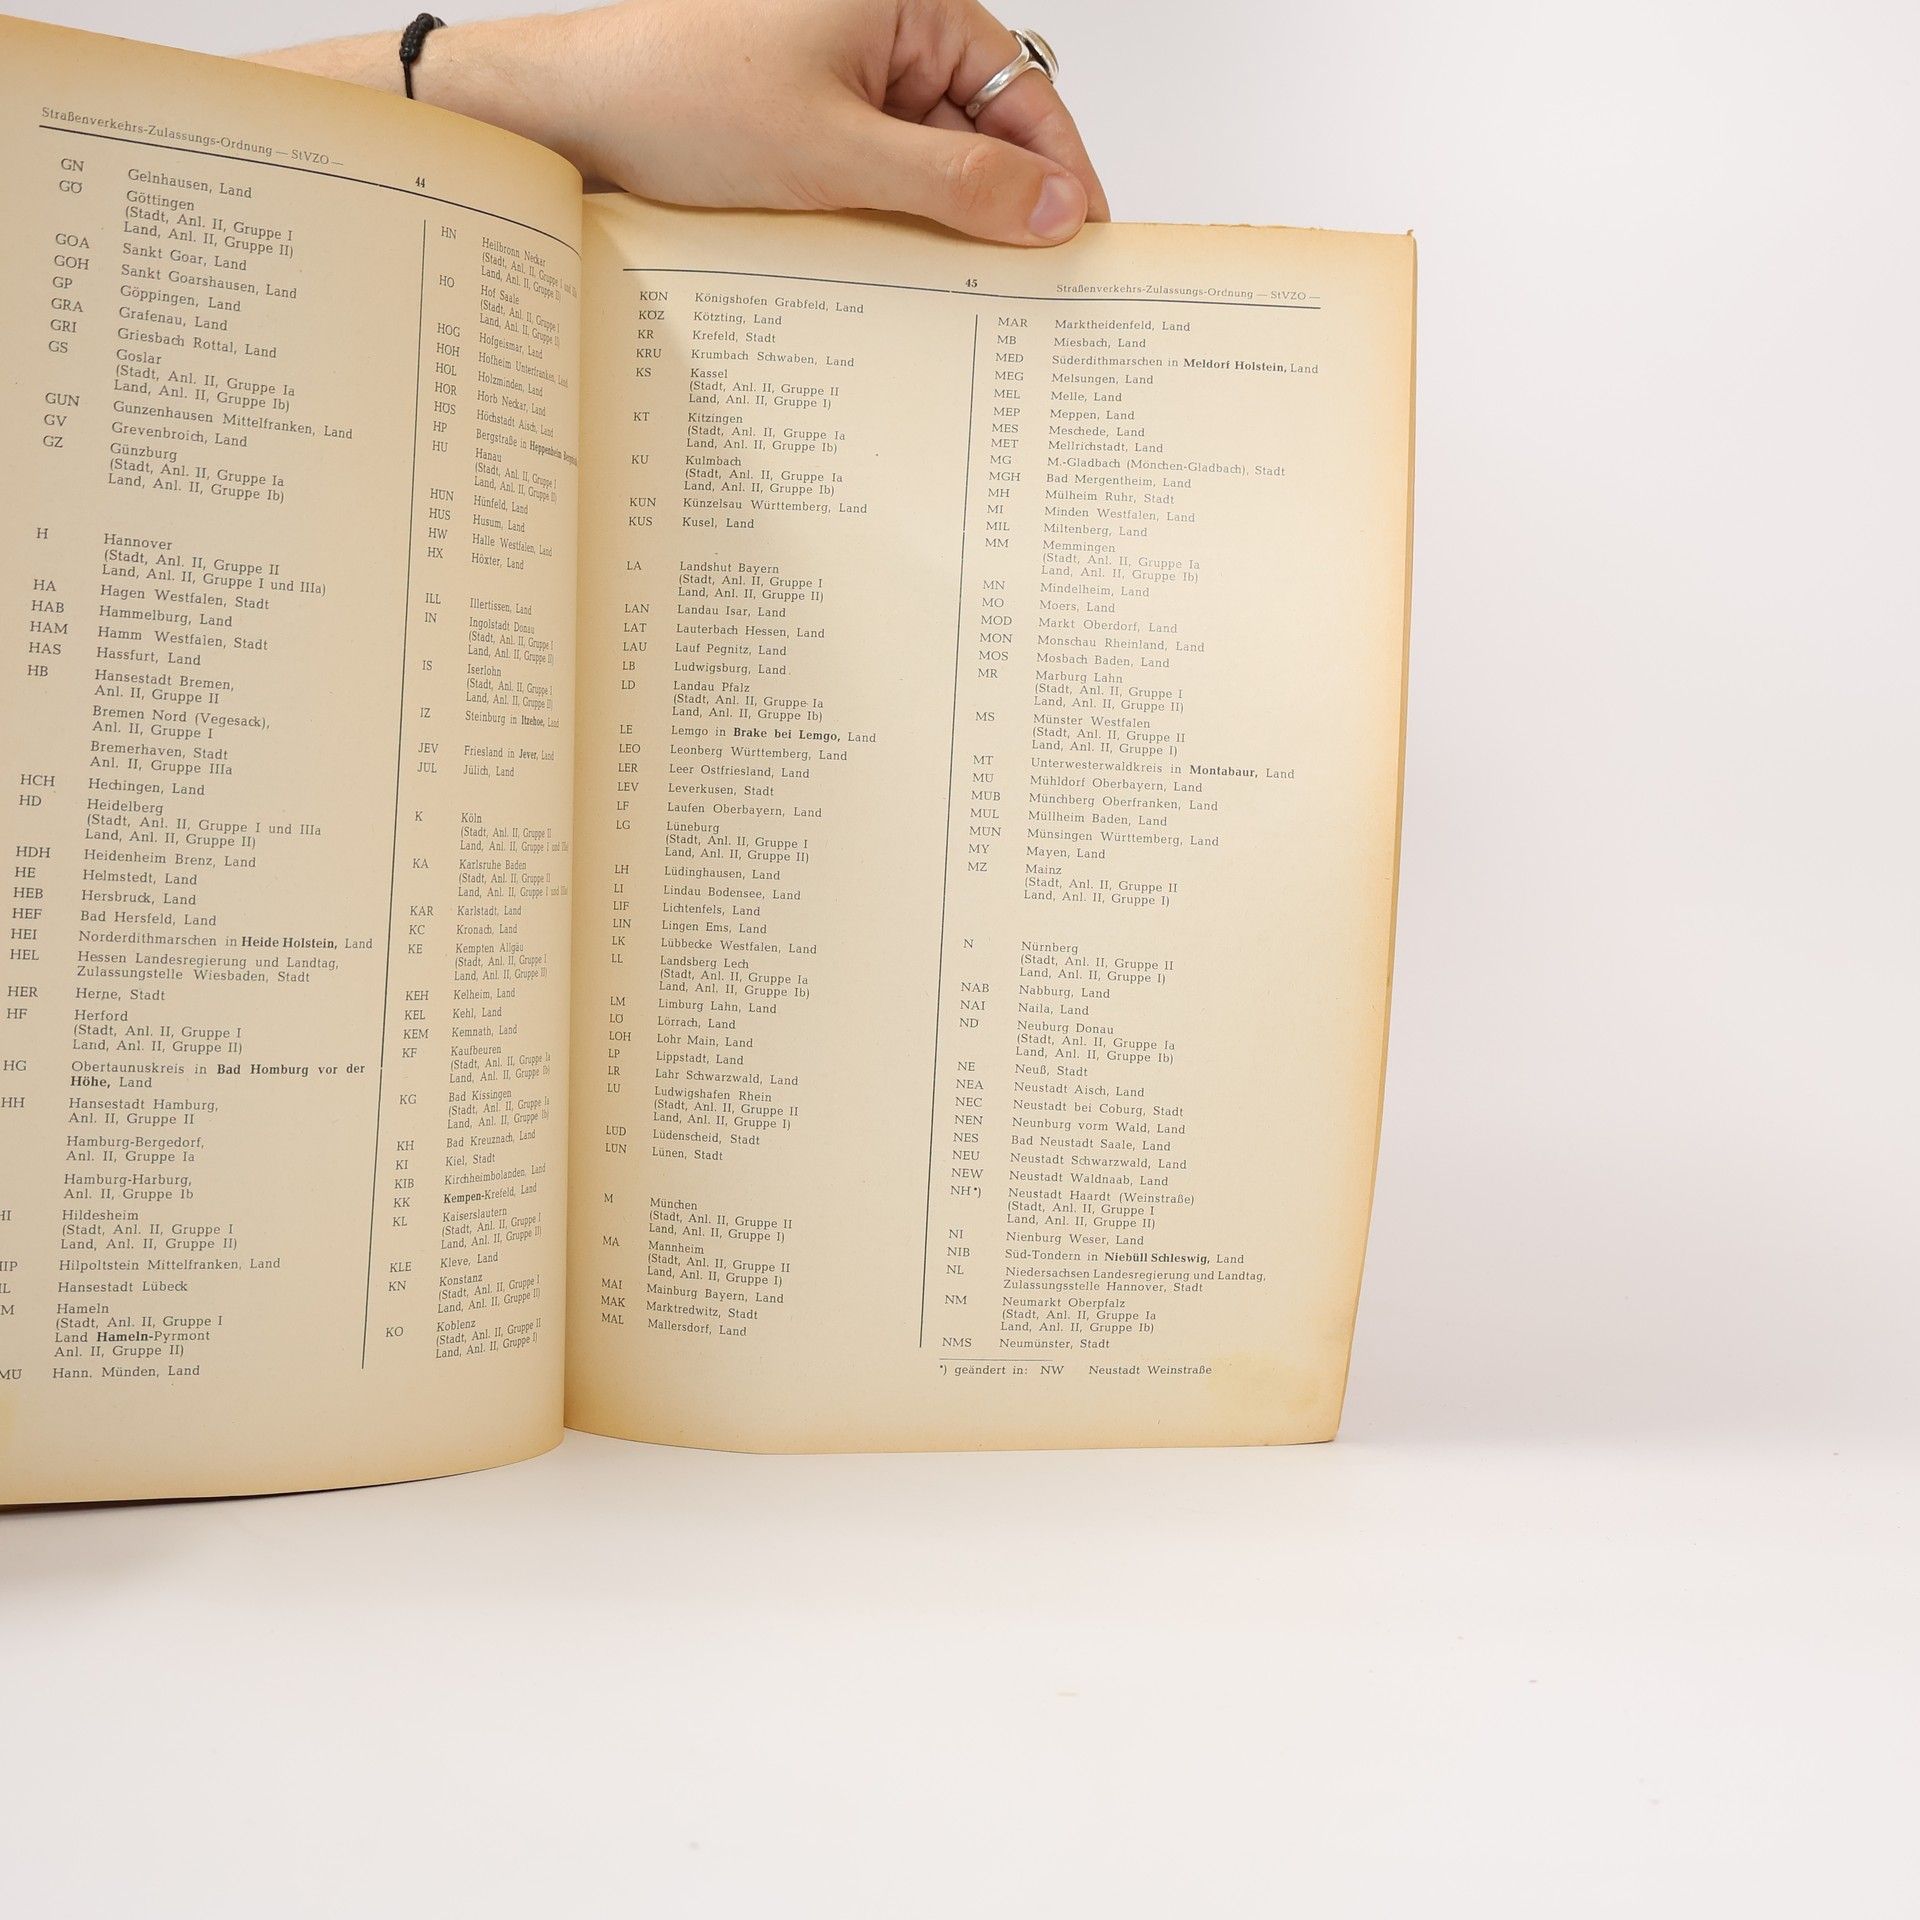 Straßenverkehrs-Zulassungs-Ordnung — StVZO —
44
GN Gelnhausen, Land
GÖ Göttingen
(Stadt, Anl. II, Gruppe I
Land, Anl. II, Gruppe II)
GOA Sankt Goar, Land
GOH Sankt Goarshausen, Land
GP Göppingen, Land
GRA Grafenau, Land
GRI Griesbach Rottal, Land
GS Goslar
(Stadt, Anl. II, Gruppe Ia
Land, Anl. II, Gruppe Ib)
GUN Gunzenhausen Mittelfranken, Land
GV Grevenbroich, Land
GZ Günzburg
(Stadt, Anl. II, Gruppe Ia
Land, Anl. II, Gruppe Ib)
H Hannover
(Stadt, Anl. II, Gruppe II
Land, Anl. II, Gruppe I und IIIa)
HA Hagen Westfalen, Stadt
HAB Hammelburg, Land
HAM Hamm Westfalen, Stadt
HAS Hassfurt, Land
HB Hansestadt Bremen,
Anl. II, Gruppe II
Bremen Nord (Vegesack),
Anl. II, Gruppe I
Bremerhaven, Stadt
Anl. II, Gruppe IIIa
HCH Hechingen, Land
HD Heidelberg
(Stadt, Anl. II, Gruppe I und IIIa
Land, Anl. II, Gruppe II)
HDH Heidenheim Brenz, Land
HE Helmstedt, Land
HEB Hersbruck, Land
HEF Bad Hersfeld, Land
HEI Norderdithmarschen in Heide Holstein, Land
HEL Hessen Landesregierung und Landtag,
Zulassungstelle Wiesbaden, Stadt
HER Herne, Stadt
HF Herford
(Stadt, Anl. II, Gruppe I
Land, Anl. II, Gruppe II)
HG Obertaunuskreis in Bad Homburg vor der
Höhe, Land
HH Hansestadt Hamburg,
Anl. II, Gruppe II
Hamburg-Bergedorf,
Anl. II, Gruppe Ia
Hamburg-Harburg,
Anl. II, Gruppe Ib
HI Hildesheim
(Stadt, Anl. II, Gruppe I
Land, Anl. II, Gruppe II)
HIP Hilpoltstein Mittelfranken, Land
L Hansestadt Lübeck
M Hameln
(Stadt, Anl. II, Gruppe I
Land Hameln-Pyrmont
Anl. II, Gruppe II)
MÜ Hann. Münden, Land
HN Heilbronn Neckar
(Stadt, Anl. II, Gruppe I und
Land, Anl. II, Gruppe II)
HO Hof Saale
(Stadt, Anl. II, Gruppe I
Land, Anl. II, Gruppe II)
HOG Hofgeismar, Land
HOH Hofheim Unterfranken, Land
HOL Holzminden, Land
HOR Horb Neckar, Land
HÖS Höchstadt Aisch, Land
HP Bergstraße in Heppenheim
HU Hanau
(Stadt, Anl. II, Gruppe I
Land, Anl. II, Gruppe II)
HÜN Hünfeld, Land
HUS Husum, Land
HW Halle Westfalen, Land
HX Höxter, Land
ILL Illertissen, Land
IN Ingolstadt Donau
(Stadt, Anl. II, Gruppe I
Land, Anl. II, Gruppe II)
IS Iserlohn
(Stadt, Anl. II, Gruppe I
Land, Anl. II, Gruppe II)
IZ Steinburg in Itzehoe, Land
JEV Friesland in Jever, Land
JÜL Jülich, Land
K Köln
(Stadt, Anl. II, Gruppe II
Land, Anl. II, Gruppe I und
KA Karlsruhe Baden
(Stadt, Anl. II, Gruppe II
Land, Anl. II, Gruppe I und
KAR Karlstadt, Land
KC Kronach, Land
KE Kempten Allgäu
(Stadt, Anl. II, Gruppe I
Land, Anl. II, Gruppe II)
KEH Kelheim, Land
KEL Kehl, Land
KEM Kemnath, Land
KF Kaufbeuren
(Stadt, Anl. II, Gruppe Ia
Land, Anl. II, Gruppe Ib)
KG Bad Kissingen
(Stadt, Anl. II, Gruppe Ia
Land, Anl. II, Gruppe Ib)
KH Bad Kreuznach, Land
KI Kiel, Stadt
KIB Kirchheimbolanden, Land
KK Kempen-Krefeld, Land
KL Kaiserslautern
(Stadt, Anl. II, Gruppe I
Land, Anl. II, Gruppe II)
KLE Kleve, Land
KN Konstanz
(Stadt, Anl. II, Gruppe I
Land, Anl. II, Gruppe II)
KO Koblenz
(Stadt, Anl. II, Gruppe II
Land, Anl. II, Gruppe I)
45
Straßenverkehrs-Zulassungs-Ordnung — StVZO —
KÖN Königshofen Grabfeld, Land
KÖZ Kötzting, Land
KR Krefeld, Stadt
KRU Krumbach Schwaben, Land
KS Kassel
(Stadt, Anl. II, Gruppe II
Land, Anl. II, Gruppe I)
KT Kitzingen
(Stadt, Anl. II, Gruppe Ia
Land, Anl. II, Gruppe Ib)
KU Kulmbach
(Stadt, Anl. II, Gruppe Ia
Land, Anl. II, Gruppe Ib)
KÜN Künzelsau Württemberg, Land
KUS Kusel, Land
LA Landshut Bayern
(Stadt, Anl. II, Gruppe I
Land, Anl. II, Gruppe II)
LAN Landau Isar, Land
LAT Lauterbach Hessen, Land
LAU Lauf Pegnitz, Land
LB Ludwigsburg, Land
LD Landau Pfalz
(Stadt, Anl. II, Gruppe Ia
Land, Anl. II, Gruppe Ib)
LE Lemgo in Brake bei Lemgo, Land
LEO Leonberg Württemberg, Land
LER Leer Ostfriesland, Land
LEV Leverkusen, Stadt
LF Laufen Oberbayern, Land
LG Lüneburg
(Stadt, Anl. II, Gruppe I
Land, Anl. II, Gruppe II)
LH Lüdinghausen, Land
LI Lindau Bodensee, Land
LIF Lichtenfels, Land
LIN Lingen Ems, Land
LK Lübbecke Westfalen, Land
LL Landsberg Lech
(Stadt, Anl. II, Gruppe Ia
Land, Anl. II, Gruppe Ib)
LM Limburg Lahn, Land
LÖ Lörrach, Land
LOH Lohr Main, Land
LP Lippstadt, Land
LR Lahr Schwarzwald, Land
LU Ludwigshafen Rhein
(Stadt, Anl. II, Gruppe II
Land, Anl. II, Gruppe I)
LÜD Lüdenscheid, Stadt
LÜN Lünen, Stadt
M München
(Stadt, Anl. II, Gruppe II
Land, Anl. II, Gruppe I)
MA Mannheim
(Stadt, Anl. II, Gruppe II
Land, Anl. II, Gruppe I)
MAI Mainburg Bayern, Land
MAK Marktredwitz, Stadt
MAL Mallersdorf, Land
MAR Marktheidenfeld, Land
MB Miesbach, Land
MED Süderdithmarschen in Meldorf Holstein, Land
MEG Melsungen, Land
MEL Melle, Land
MEP Meppen, Land
MES Meschede, Land
MET Mellrichstadt, Land
MG M.-Gladbach (Mönchen-Gladbach), Stadt
MGH Bad Mergentheim, Land
MH Mülheim Ruhr, Stadt
MI Minden Westfalen, Land
MIL Miltenberg, Land
MM Memmingen
(Stadt, Anl. II, Gruppe Ia
Land, Anl. II, Gruppe Ib)
MN Mindelheim, Land
MO Moers, Land
MOD Markt Oberdorf, Land
MON Monschau Rheinland, Land
MOS Mosbach Baden, Land
MR Marburg Lahn
(Stadt, Anl. II, Gruppe I
Land, Anl. II, Gruppe II)
MS Münster Westfalen
(Stadt, Anl. II, Gruppe II
Land, Anl. II, Gruppe I)
MT Unterwesterwaldkreis in Montabaur, Land
MÜ Mühldorf Oberbayern, Land
MÜB Münchberg Oberfranken, Land
MÜL Müllheim Baden, Land
MÜN Münsingen Württemberg, Land
MY Mayen, Land
MZ Mainz
(Stadt, Anl. II, Gruppe II
Land, Anl. II, Gruppe I)
N Nürnberg
(Stadt, Anl. II, Gruppe II
Land, Anl. II, Gruppe I)
NAB Nabburg, Land
NAI Naila, Land
ND Neuburg Donau
(Stadt, Anl. II, Gruppe Ia
Land, Anl. II, Gruppe Ib)
NE Neuß, Stadt
NEA Neustadt Aisch, Land
NEC Neustadt bei Coburg, Stadt
NEN Neunburg vorm Wald, Land
NES Bad Neustadt Saale, Land
NEU Neustadt Schwarzwald, Land
NEW Neustadt Waldnaab, Land
NH*) Neustadt Haardt (Weinstraße)
(Stadt, Anl. II, Gruppe I
Land, Anl. II, Gruppe II)
NI Nienburg Weser, Land
NIB Süd-Tondern in Niebüll Schleswig, Land
NL Niedersachsen Landesregierung und Landtag,
Zulassungsstelle Hannover, Stadt
NM Neumarkt Oberpfalz
(Stadt, Anl. II, Gruppe Ia
Land, Anl. II, Gruppe Ib)
NMS Neumünster, Stadt
*) geändert in: NW Neustadt Weinstraße